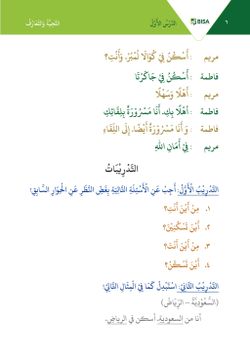 ٦ BISA الدَّرْسُ الأَوَّلُ التَّحِيَّةُ وَالتَّعَارُفُ
مريم : أَسْكُنُ فِي كُوَالَا لُمْبُرْ. وَأَنْتِ؟
فاطمة : أَسْكُنُ فِي جَاكَرْتَا
مريم : أَهْلًا وَسَهْلًا
فاطمة : أَهْلًا بِكِ. أَنَا مَسْرُوْرَةٌ بِلِقَائِكِ
فاطمة : وَ أَنَا مَسْرُوْرَةٌ أَيْضًا. إِلَى اللِّقَاءِ
مريم : فِي أَمَانِ اللهِ
التَّدْرِيْبَاتُ
التَّدْرِيْبُ الأَوَّلُ: أَجِبْ عَنِ الأَسْئِلَةِ التَّالِيَةِ بِغَضِّ النَّظَرِ عَنِ الْحِوَارِ السَّابِقِ!
١. مِنْ أَيْنَ أَنْتِ؟
٢. أَيْنَ تَسْكُنِيْنَ؟
٣. مِنْ أَيْنَ أَنْتَ؟
٤. أَيْنَ تَسْكُنُ؟
التَّدْرِيْبُ الثَّانِيْ: اسْتَبْدِلْ كَمَا فِي الْمِثَالِ التَّالِيْ:
(السُّعُوْدِيَّةُ – الرِّيَاضُ)
أنا من السعودية. أسكن في الرياض.